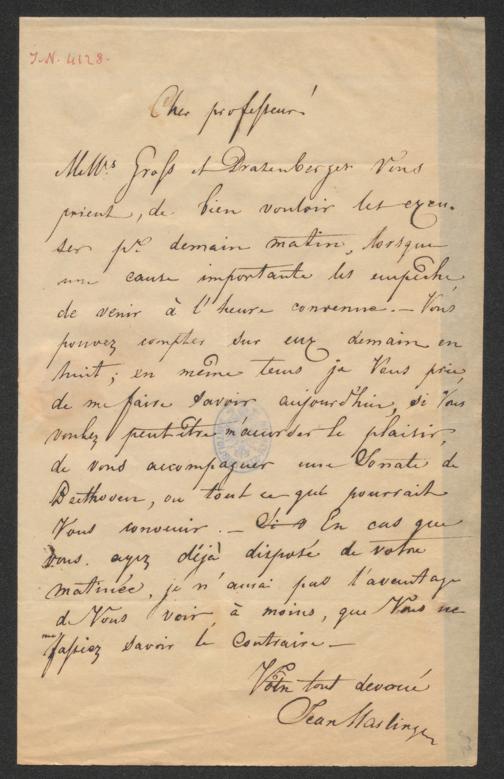 J.N. 4128.
Cher professeur!
MeWrs Groſs et Drasenberger Vous
prient, de bien vouloir les excu-
ser pr. demain matin, lorsque
une cause importante les empêche
de venir à l'heure convenue. — Vous
pouvez compter sur eux demain en
huit; en même tems je Vous prie
de me faire savoir aujourd'hui, si Vous
voulez peutêtre m'acorder le plaisir,
de vous accompagner une Sonate de
Beethoven, ou tout ce qui pourrait
Vous convenir. — En cas que
vous ayez déjà disposé de votre
matinée, je n'aurai pas l'avantage
de Vous voir, à moins, que Vous ne
me faſsiez savoir le contraire —
Votre tout devoué
Jean Haslinger